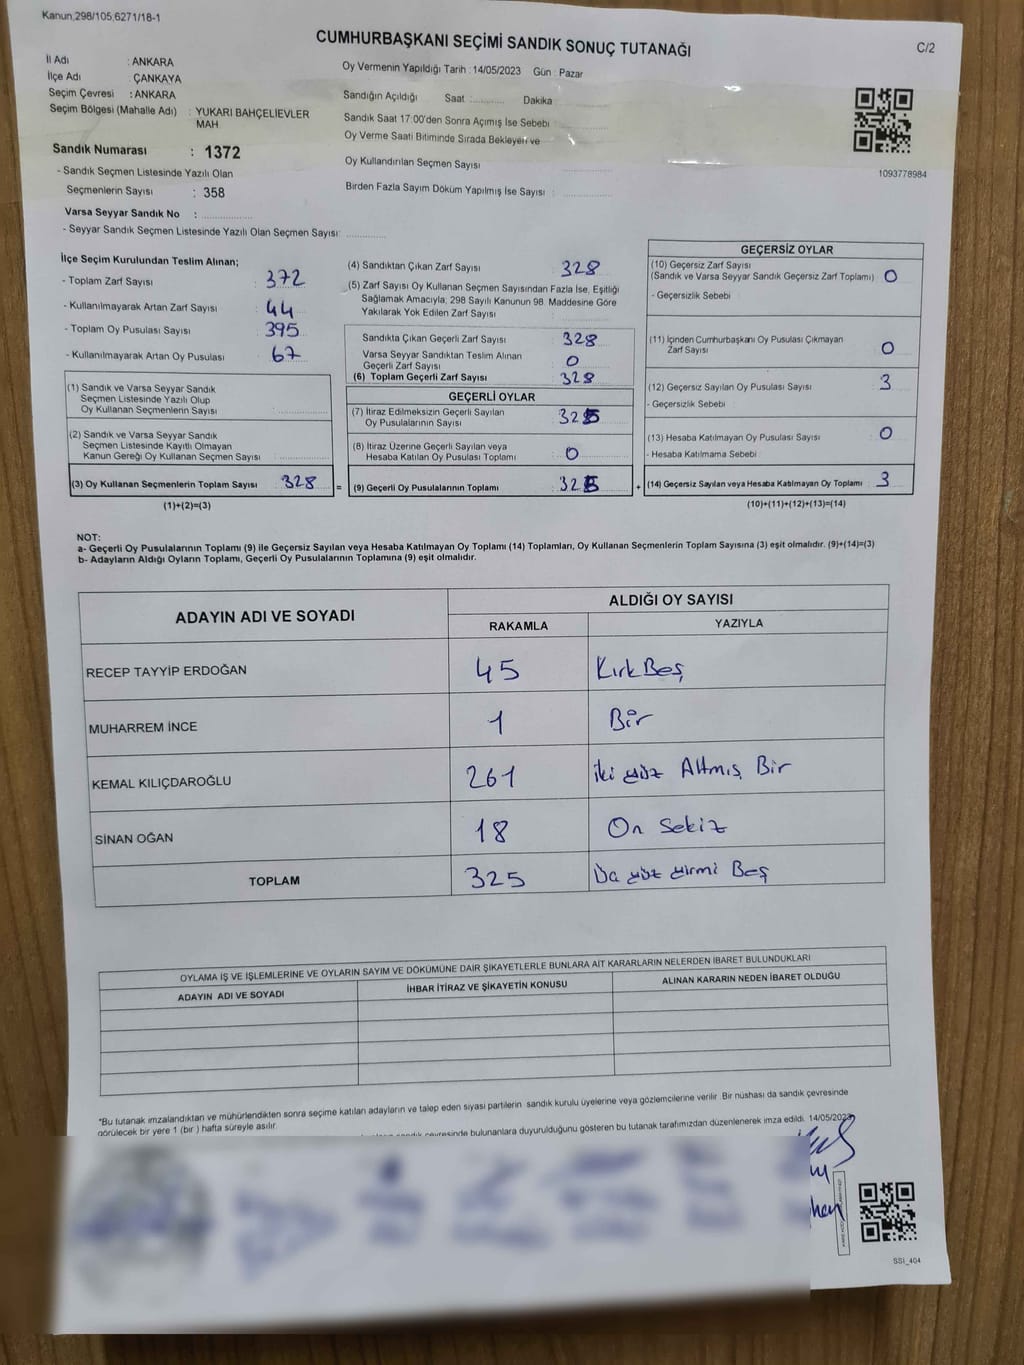 Kanun,298/105,6271/18-1
CUMHURBAŞKANI SEÇİMİ SANDIK SONUÇ TUTANAĞI
C/2
İl Adı : ANKARA
İlçe Adı : ÇANKAYA
Seçim Çevresi : ANKARA
Seçim Bölgesi (Mahalle Adı) : YUKARI BAHÇELİEVLER
MAH
Sandık Numarası : 1372
- Sandık Seçmen Listesinde Yazılı Olan
Seçmenlerin Sayısı : 358
Varsa Seyyar Sandık No : ..............
- Seyyar Sandık Seçmen Listesinde Yazılı Olan Seçmen Sayısı: ............
Oy Vermenin Yapıldığı Tarih : 14/05/2023 Gün : Pazar
Sandığın Açıldığı Saat :........... Dakika ..............
Sandık Saat 17:00'den Sonra Açımış İse Sebebi ..............
Oy Verme Saati Bitiminde Sırada Bekleyen ve
Oy Kullandırılan Seçmen Sayısı ..............
Birden Fazla Sayım Döküm Yapılmış İse Sayısı : ..............
1093778984
İlçe Seçim Kurulundan Teslim Alınan;
- Toplam Zarf Sayısı : 372
- Kullanılmayarak Artan Zarf Sayısı : 44
- Toplam Oy Pusulası Sayısı : 395
- Kullanılmayarak Artan Oy Pusulası : 67
(1) Sandık ve Varsa Seyyar Sandık
Seçmen Listesinde Yazılı Olup
Oy Kullanan Seçmenlerin Sayısı : ..............
(2) Sandık ve Varsa Seyyar Sandık
Seçmen Listesinde Kayıtlı Olmayan
Kanun Gereği Oy Kullanan Seçmen Sayısı : ..............
(3) Oy Kullanan Seçmenlerin Toplam Sayısı : 328 =
(1)+(2)=(3)
(4) Sandıktan Çıkan Zarf Sayısı : 328
(5) Zarf Sayısı Oy Kullanan Seçmen Sayısından Fazla İse, Eşitliği
Sağlamak Amacıyla, 298 Sayılı Kanunun 98. Maddesine Göre
Yakılarak Yok Edilen Zarf Sayısı : ..............
Sandıkta Çıkan Geçerli Zarf Sayısı : 328
Varsa Seyyar Sandıktan Teslim Alınan
Geçerli Zarf Sayısı : 0
(6) Toplam Geçerli Zarf Sayısı : 328
GEÇERLİ OYLAR
(7) İtiraz Edilmeksizin Geçerli Sayılan
Oy Pusulalarının Sayısı : 325
(8) İtiraz Üzerine Geçerli Sayılan veya
Hesaba Katılan Oy Pusulası Toplamı : 0
(9) Geçerli Oy Pusulalarının Toplamı : 325 +
GEÇERSİZ OYLAR
(10) Geçersiz Zarf Sayısı
(Sandık ve Varsa Seyyar Sandık Geçersiz Zarf Toplamı) : 0
- Geçersizlik Sebebi :
(11) İçinden Cumhurbaşkanı Oy Pusulası Çıkmayan
Zarf Sayısı : 0
(12) Geçersiz Sayılan Oy Pusulası Sayısı : 3
- Geçersizlik Sebebi :
(13) Hesaba Katılmayan Oy Pusulası Sayısı : 0
- Hesaba Katılmama Sebebi :
(14) Geçersiz Sayılan veya Hesaba Katılmayan Oy Toplamı : 3
(10)+(11)+(12)+(13)=(14)
NOT:
a- Geçerli Oy Pusulalarının Toplamı (9) ile Geçersiz Sayılan veya Hesaba Katılmayan Oy Toplamı (14) Toplamları, Oy Kullanan Seçmenlerin Toplam Sayısına (3) eşit olmalıdır. (9)+(14)=(3)
b- Adayların Aldığı Oyların Toplamı, Geçerli Oy Pusulalarının Toplamına (9) eşit olmalıdır.
ADAYIN ADI VE SOYADI ALDIĞI OY SAYISI
RAKAMLA YAZIYLA
RECEP TAYYİP ERDOĞAN 45 Kırk Beş
MUHARREM İNCE 1 Bir
KEMAL KILIÇDAROĞLU 261 İki yüz Altmış Bir
SİNAN OĞAN 18 On Sekiz
TOPLAM 325 Üç yüz yirmi Beş
OYLAMA İŞ VE İŞLEMLERİNE VE OYLARIN SAYIM VE DÖKÜMÜNE DAİR ŞİKAYETLERLE BUNLARA AİT KARARLARIN NELERDEN İBARET BULUNDUKLARI
ADAYIN ADI VE SOYADI İHBAR İTİRAZ VE ŞİKAYETİN KONUSU ALINAN KARARIN NEDEN İBARET OLDUĞU
*Bu tutanak imzalandıktan ve mühürlendikten sonra seçime katılan adayların ve talep eden siyasi partilerin sandık kurulu üyelerine veya gözlemcilerine verilir. Bir nüshası da sandık çevresinde
görülecek bir yere 1 (bir ) hafta süreyle asılır.
sandık çevresinde bulunanlara duyurulduğunu gösteren bu tutanak tarafımızdan düzenlenerek imza edildi. 14/05/2023
SSI_404